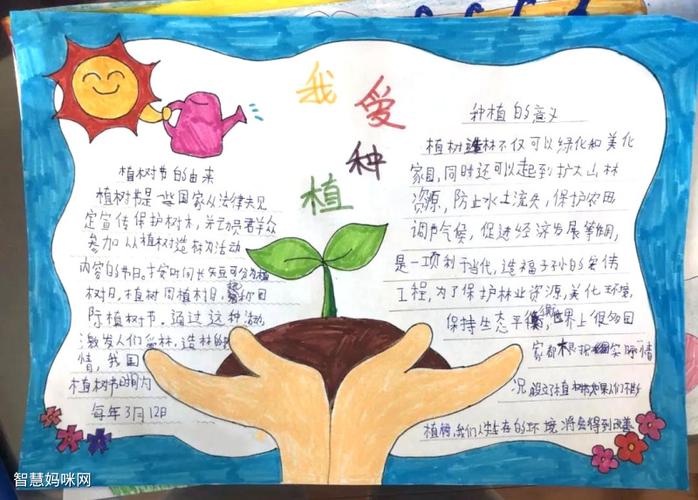 我爱种植
植树节的由来
植树节是一些国家以法律规
定宣传保护树木，并动员群众
参加以植树造林为活动
内容的节日。按时间长短可分为植
树日、植树周植树月，
际植树节。通过这种活动，
激发人们爱林、造林的
情，我国
植树节日期为
每年3月12日
种植的意义
植树造林不仅可以绿化和美化
家园，同时还可以起到扩大山林
资源，防止水土流失，保护农田，
调节气候，促进经济发展等作用，
是一项利于当代，造福子孙的宏伟
工程，为了保护林业资源，美化环境，
保持生态平衡，世界上很多国
家都根据实际情
况 设立了植树
植树，我们人类生存的环境将会得到改善
智慧妈咪网